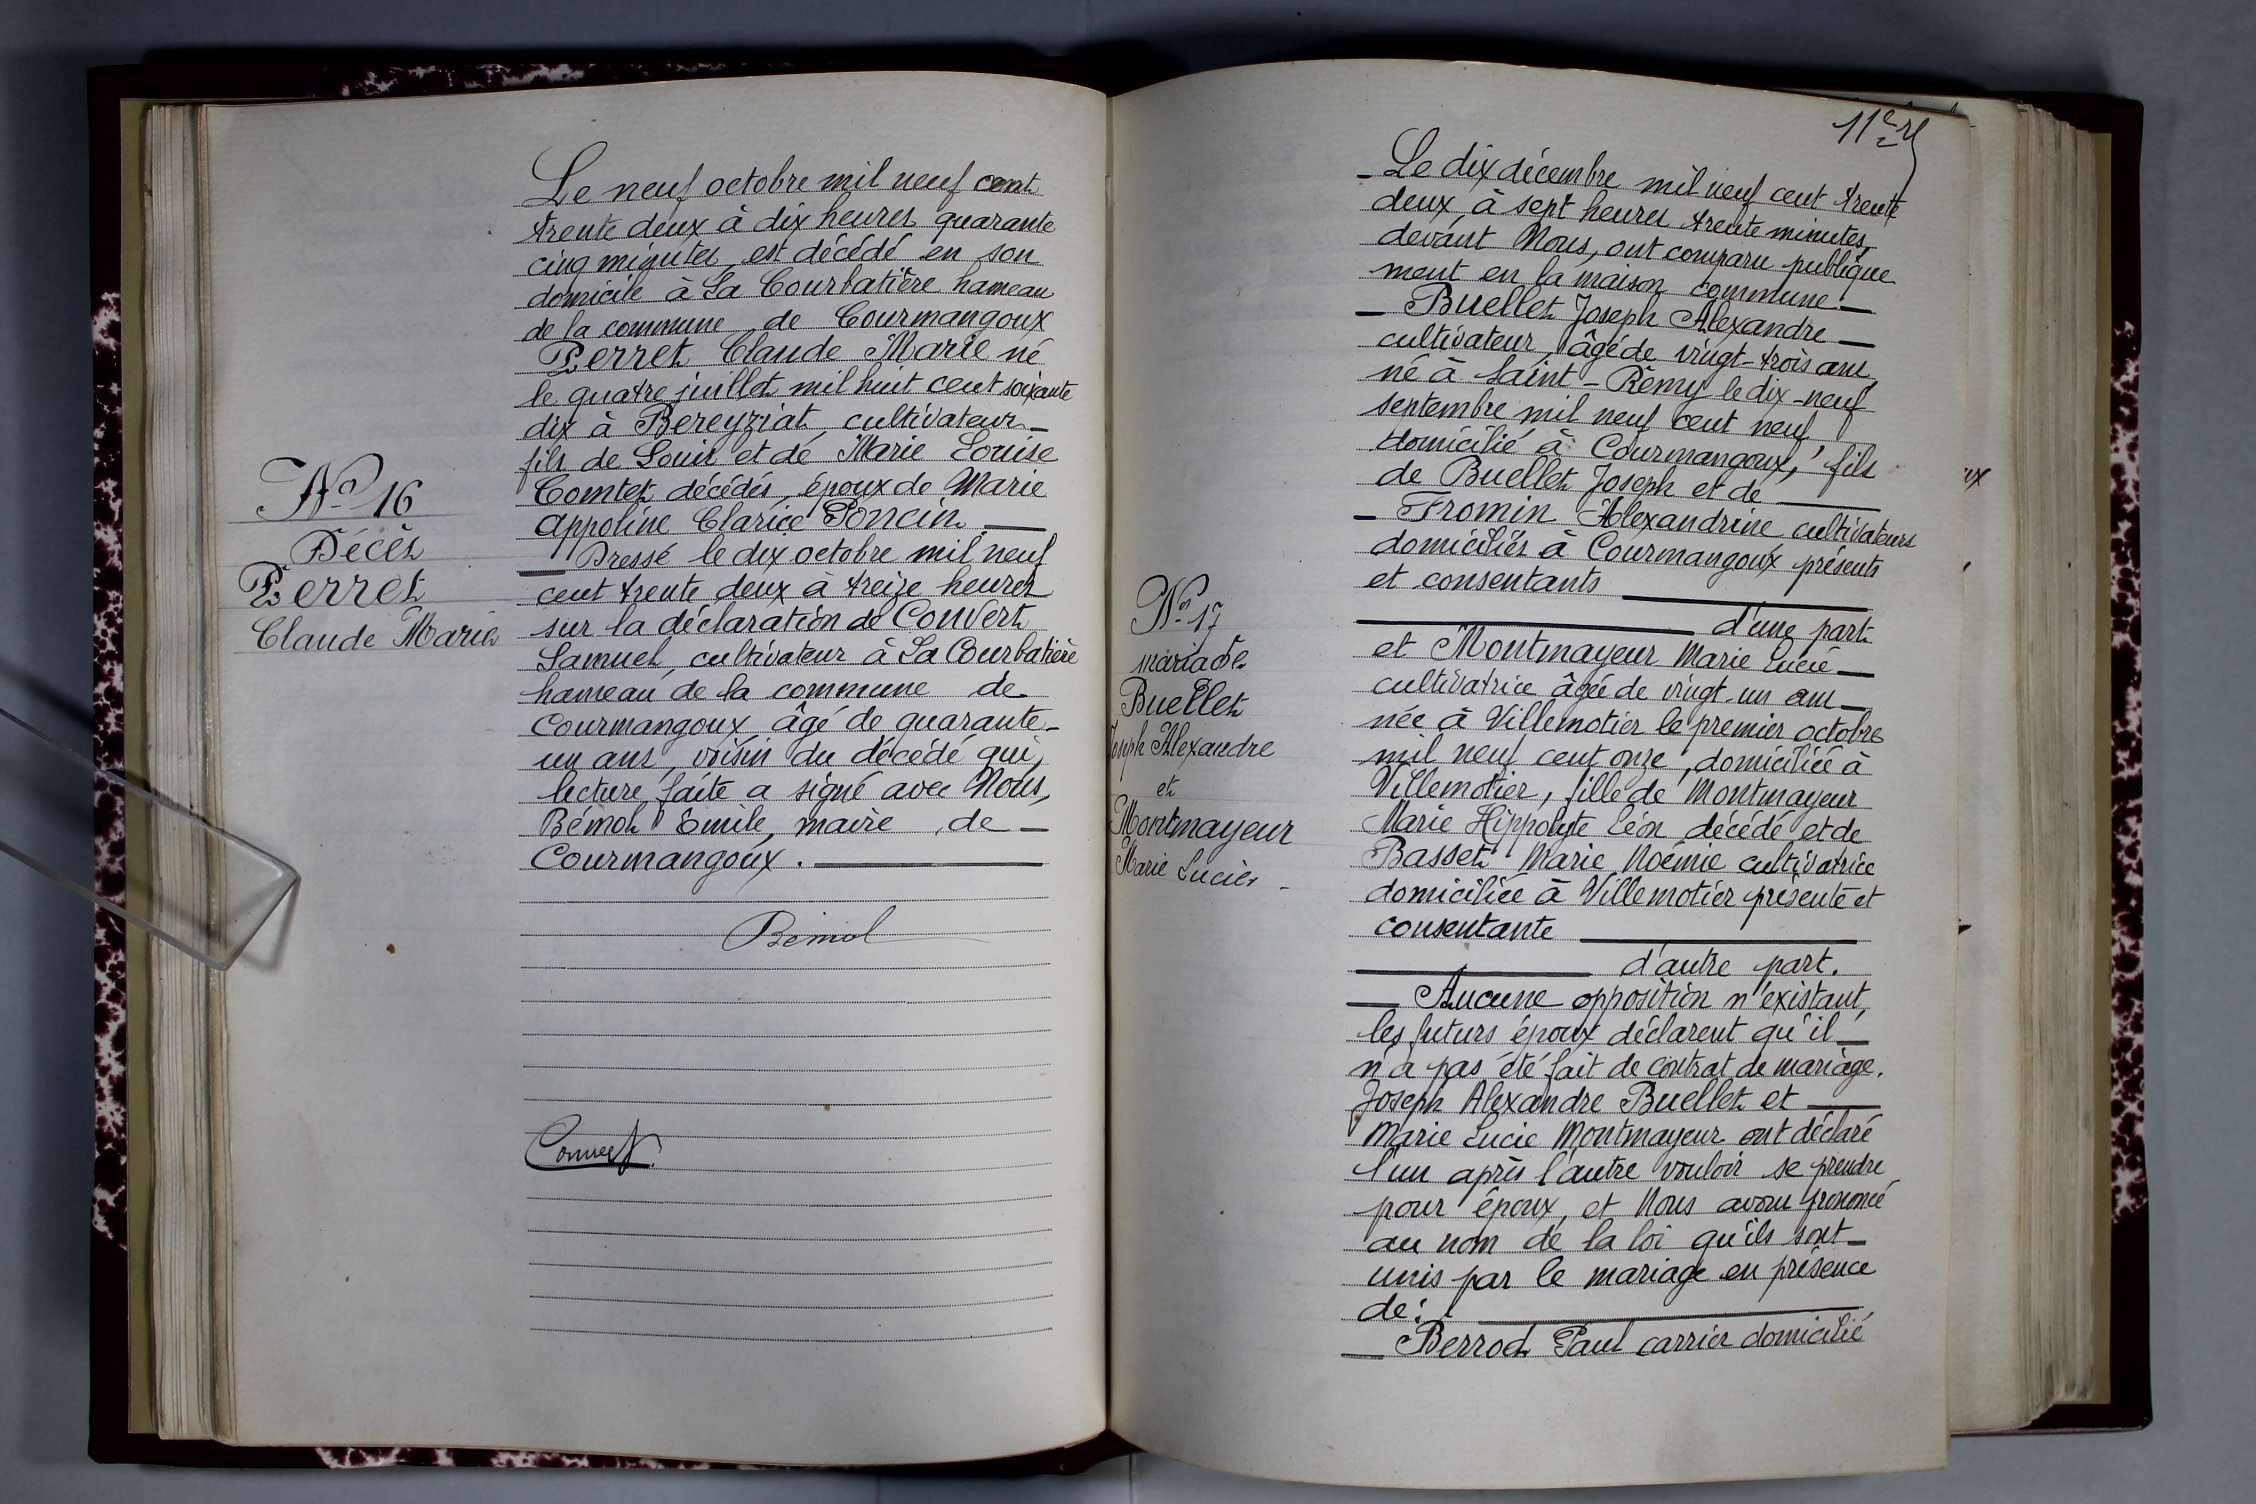 N° 16
Décès
Perret
Claude Marie
Le neuf octobre mil neuf cent
trente deux à dix heures quarante
cinq minutes, est décédé en son
domicile à La Courbatière hameau
de la commune de Courmangoux
Perret Claude Marie né
le quatre juillet mil huit cent soixante
dix à Bereyziat, cultivateur
fils de Louis et de Marie Louise
Comtet décédés, époux de Marie
Appoline Clarice Poncin.
Dressé le dix octobre mil neuf
cent trente deux à treize heures
sur la déclaration de Convert
Samuel, cultivateur à La Courbatière
hameau de la commune de
Courmangoux âgé de quarante-
un ans, voisin du décédé qui,
lecture faite a signé avec Nous,
Bémol Emile, maire de
Courmangoux.
Bémol
Convert
N° 17
mariage
Buellet
Joseph Alexandre
et
Montmayeur
Marie Lucie
Le dix décembre mil neuf cent trente
deux à sept heures trente minutes,
devant Nous, ont comparu publique
ment en la maison commune
Buellet Joseph Alexandre
cultivateur, âgé de vingt-trois ans
né à Saint-Rémy le dix-neuf
septembre mil neuf cent neuf
domicilié à Courmangoux, fils
de Buellet Joseph et de
Fromin Alexandrine cultivateurs
domiciliés à Courmangoux présents
et consentants
d'une part
et Montmayeur Marie Lucie
cultivatrice âgée de vingt-un ans
née à Villemotier le premier octobre
mil neuf cent onze, domiciliée à
Villemotier, fille de Montmayeur
Marie Hippolyte Léon décédé et de
Basset Marie Noémie cultivatrice
domiciliée à Villemotier présente et
consentante
d'autre part.
Aucune opposition n'existant,
les futurs époux déclarent qu'il
n'a pas été fait de contrat de mariage.
Joseph Alexandre Buellet et
Marie Lucie Montmayeur ont déclaré
l'un après l'autre vouloir se prendre
pour époux, et Nous avons prononcé
au nom de la loi qu'ils sont
unis par le mariage en présence
de:
Berrod Paul carrier domicilié